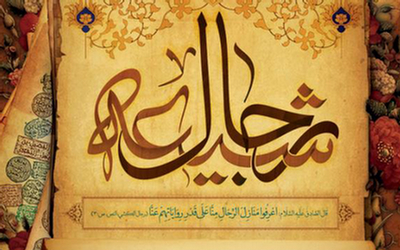 رجال شیعه
قال الصادق علیه السلام: اعْرِفُوا مَنَازِلَ الرِّجَالِ مِنَّا عَلَى قَدْرِ رِوَايَاتِهِمْ عَنَّا